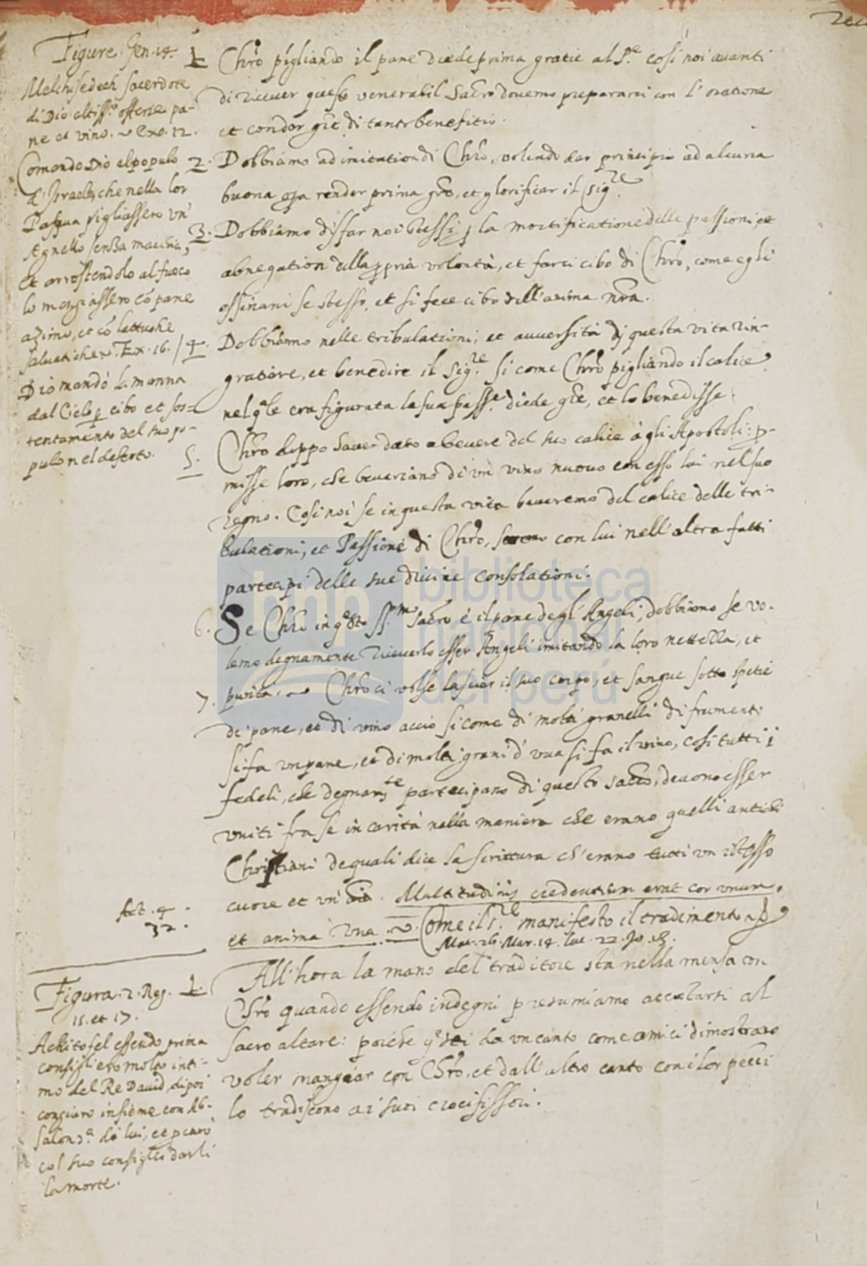 Figure. Gen. 14.
Melchisedech sacerdote
di Dio altiss.o offerse pa-
ne et vino. Exo. 12.
Comandò Dio al populo
d'Israel, che nella lor
Pasqua pigliassero un'
Agnello senza macchia,
et arrostendolo al fuoco
lo mangiassero cõ pane
azimo, et cõ lattuche
salvatiche Ex. 16.
Dio mandò la manna
dal Cielo p cibo et sos-
tentamento del suo po-
pulo nel deserto.
1. Chrõ pigliando il pane diede prima gratie al P.e così noi avanti
di ricever questo venerabil Sacrõ dovemo prepararci con l'oratione
et con dar grẽ di tanto benefitio.
2. Dobbiamo ad imitation di Chrõ, volendo dar principio ad alcuna
buona render prima grẽ, et glorificar il Sig.re
3. Dobbiamo disfar noi stessi p la mortificatione delle passioni, et
abnegation della ppria volontà, et farci cibo di Chrõ, come egli
se stesso, et si fece cibo dell'anima nrã.
4. Dobbiamo nelle tribulationi, et avversità di questa vita rin-
gratiare, et benedire il Sig.re si come Chrõ pigliando il calice
nel q.le era figurata la sua pass.e diede grẽ, et lo benedisse.
5. Chrõ doppo haver dato a bevere del suo calice à gli Apostoli, p-
misse loro, che beveriano di un vino nuovo con esso lui nel suo
regno. Così noi se in questa vita beveremo del calice delle tri-
bulationi, et Passione di Chrõ, con lui nell'altra fatti
partecipi delle sue divine consolationi.
6. Se Chrõ in q.sto SS.mo Sacrõ è il pane degl'Angeli, dobbiamo se vo-
lemo degnamente riceverlo esser Angeli imitando la loro nettezza, et
purità.
7. Chrõ ci volse lasciar il suo corpo, et sangue sotto spetie
di pane, et di vino acciò si come di molti granelli di frumento
si fa un pane, et di molti grani d'uva si fa il vino, così tutti i
fedeli, che degnam.te partecipano di questo sacrõ, devono esser
uniti fra se in carità nella maniera che erano quelli antichi
Christiani de quali dice la scrittura ch'erano tutti un istesso
cuore et un' Multitudinis credentium erat cor unum,
et anima una. Come il S.re manifestò il tradimento
Act. 4.
32.
Mat. 26. Mar. 14. Luc. 22. Jo. 13.
Figura. 2. Reg.
15. et 17.
Achitofel essendo prima
consigliero molto inti-
mo del Re David, dipoi
congiurò insieme con Ab-
salon di lui, et pcurò
col suo consiglio darli
la morte.
1. All'hora la mano del traditore stà nella mensa con
Chrõ quando essendo indegni presumiamo accostarsi al
sacro altare: poiche q.sti da un canto come amici dimostrano
voler mangiar con Chrõ, et dall'altro canto con i lor pecc.ti
lo tradiscono ai suoi crocifissori.
biblioteca
nacional
del perú
bnp